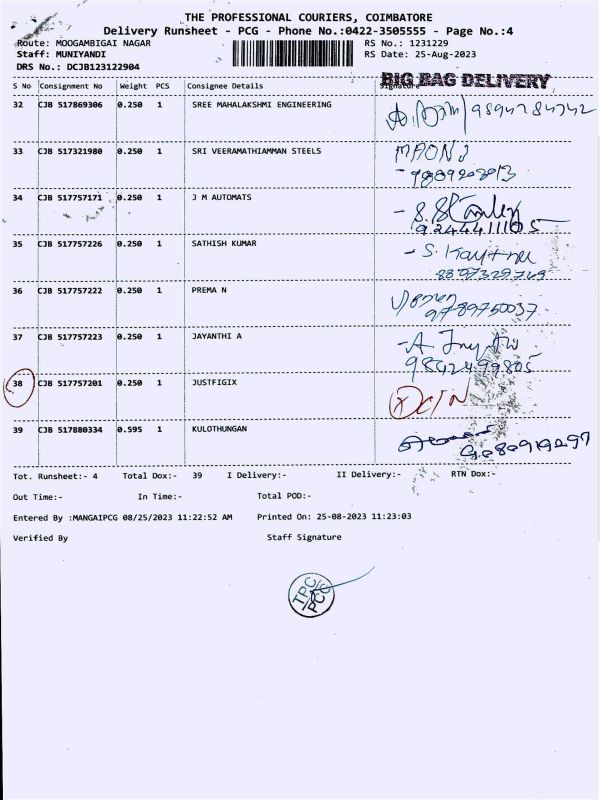 THE PROFESSIONAL COURIERS, COIMBATORE
Delivery Runsheet - PCG - Phone No.:0422-3505555 - Page No.:4
Route: MOOGAMBIGAI NAGAR RS No.: 1231229
Staff: MUNIYANDI RS Date: 25-Aug-2023
DRS No.: DCJB123122904
BIG BAG DELIVERY
S No Consignment No Weight PCS Consignee Details Signature
32 CJB 517869306 0.250 1 SREE MAHALAKSHMI ENGINEERING
33 CJB 517321980 0.250 1 SRI VEERAMATHIAMMAN STEELS
34 CJB 517757171 0.250 1 J M AUTOMATS
9244411105
35 CJB 517757226 0.250 1 SATHISH KUMAR
36 CJB 517757222 0.250 1 PREMA N
9789750037
37 CJB 517757223 0.250 1 JAYANTHI A
9842499805
38 CJB 517757201 0.250 1 JUSTFIGIX
39 CJB 517880334 0.595 1 KULOTHUNGAN
Tot. Runsheet:- 4 Total Dox:- 39 I Delivery:- II Delivery:- RTN Dox:-
Out Time:- In Time:- Total POD:-
Entered By :MANGAIPCG 08/25/2023 11:22:52 AM Printed On: 25-08-2023 11:23:03
Verified By Staff Signature
TPC
PCG